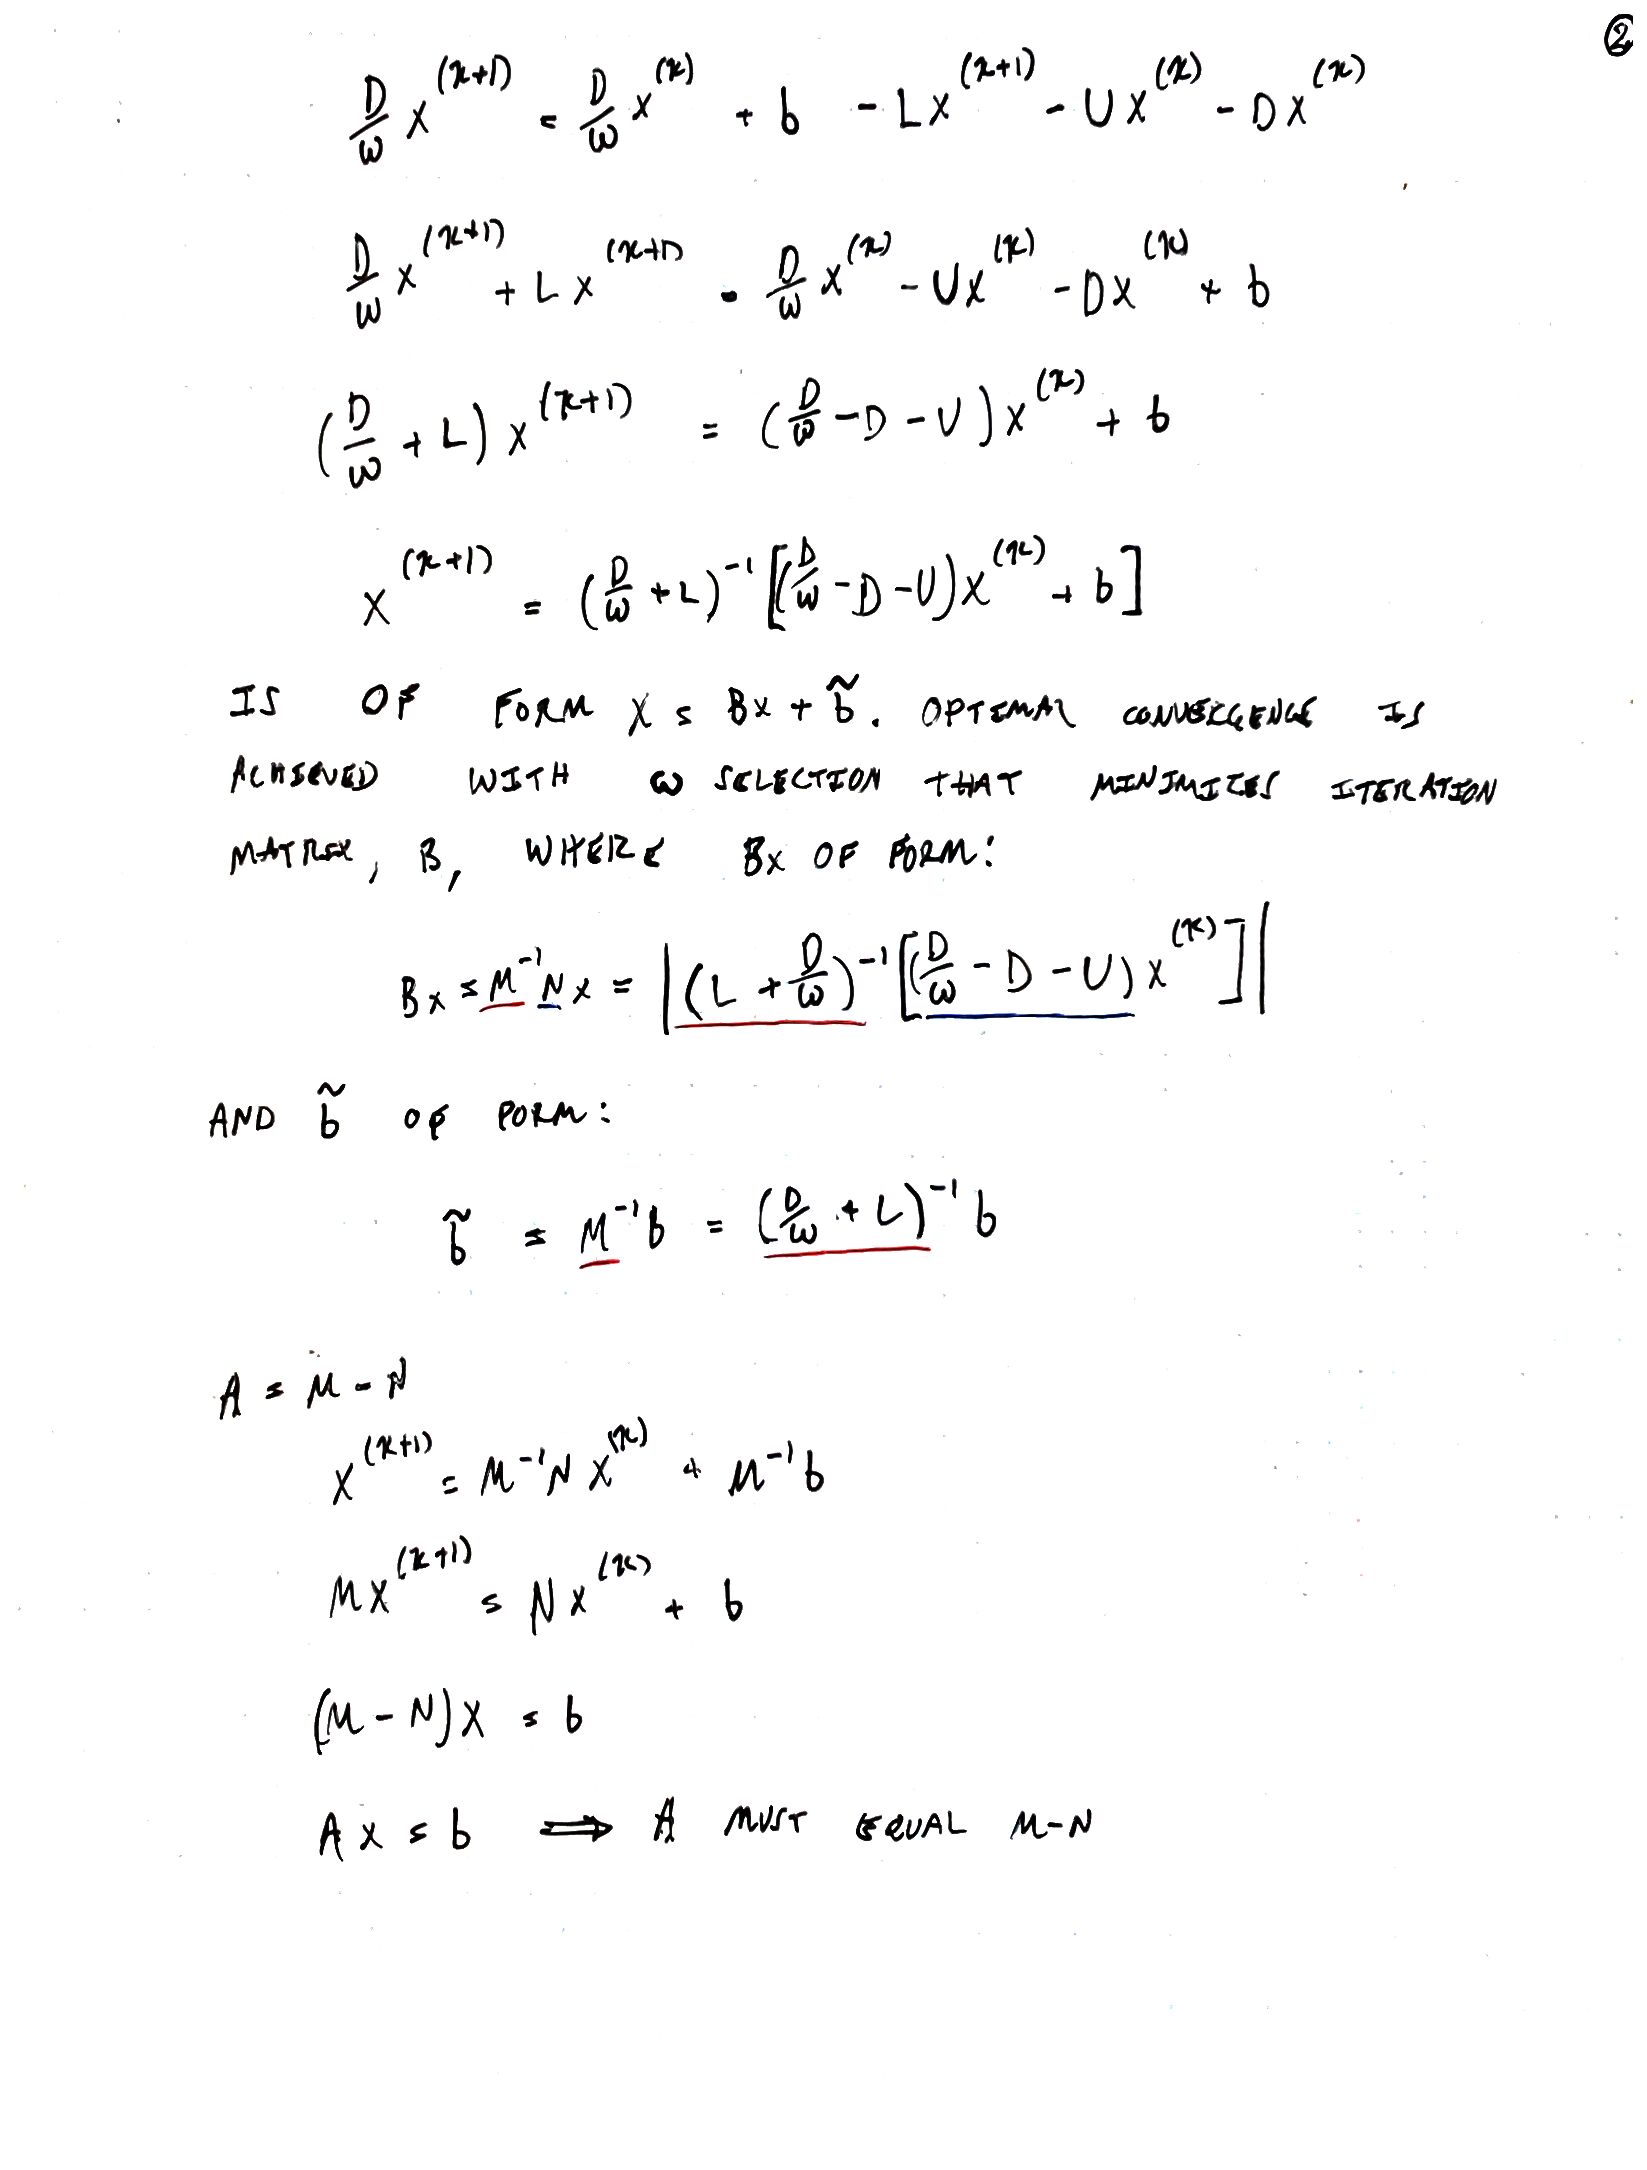 ②
D/ω x^(k+1) = D/ω x^(k) + b - Lx^(k+1) - Ux^(k) - Dx^(k)
D/ω x^(k+1) + Lx^(k+1) = D/ω x^(k) - Ux^(k) - Dx^(k) + b
(D/ω + L) x^(k+1) = (D/ω - D - U) x^(k) + b
x^(k+1) = (D/ω + L)^-1 [(D/ω - D - U) x^(k) + b]
IS OF FORM X = BX + b̃. OPTIMAL CONVERGENCE IS
ACHIEVED WITH ω SELECTION THAT MINIMIZES ITERATION
MATRIX, B, WHERE BX OF FORM:
Bx = M^-1 N x = |(L + D/ω)^-1 [(D/ω - D - U) x^(k)]|
AND b̃ OF FORM:
b̃ = M^-1 b = (D/ω + L)^-1 b
A = M - N
x^(k+1) = M^-1 N x^(k) + M^-1 b
Mx^(k+1) = Nx^(k) + b
(M - N)X = b
AX = b ⟹ A MUST EQUAL M-N